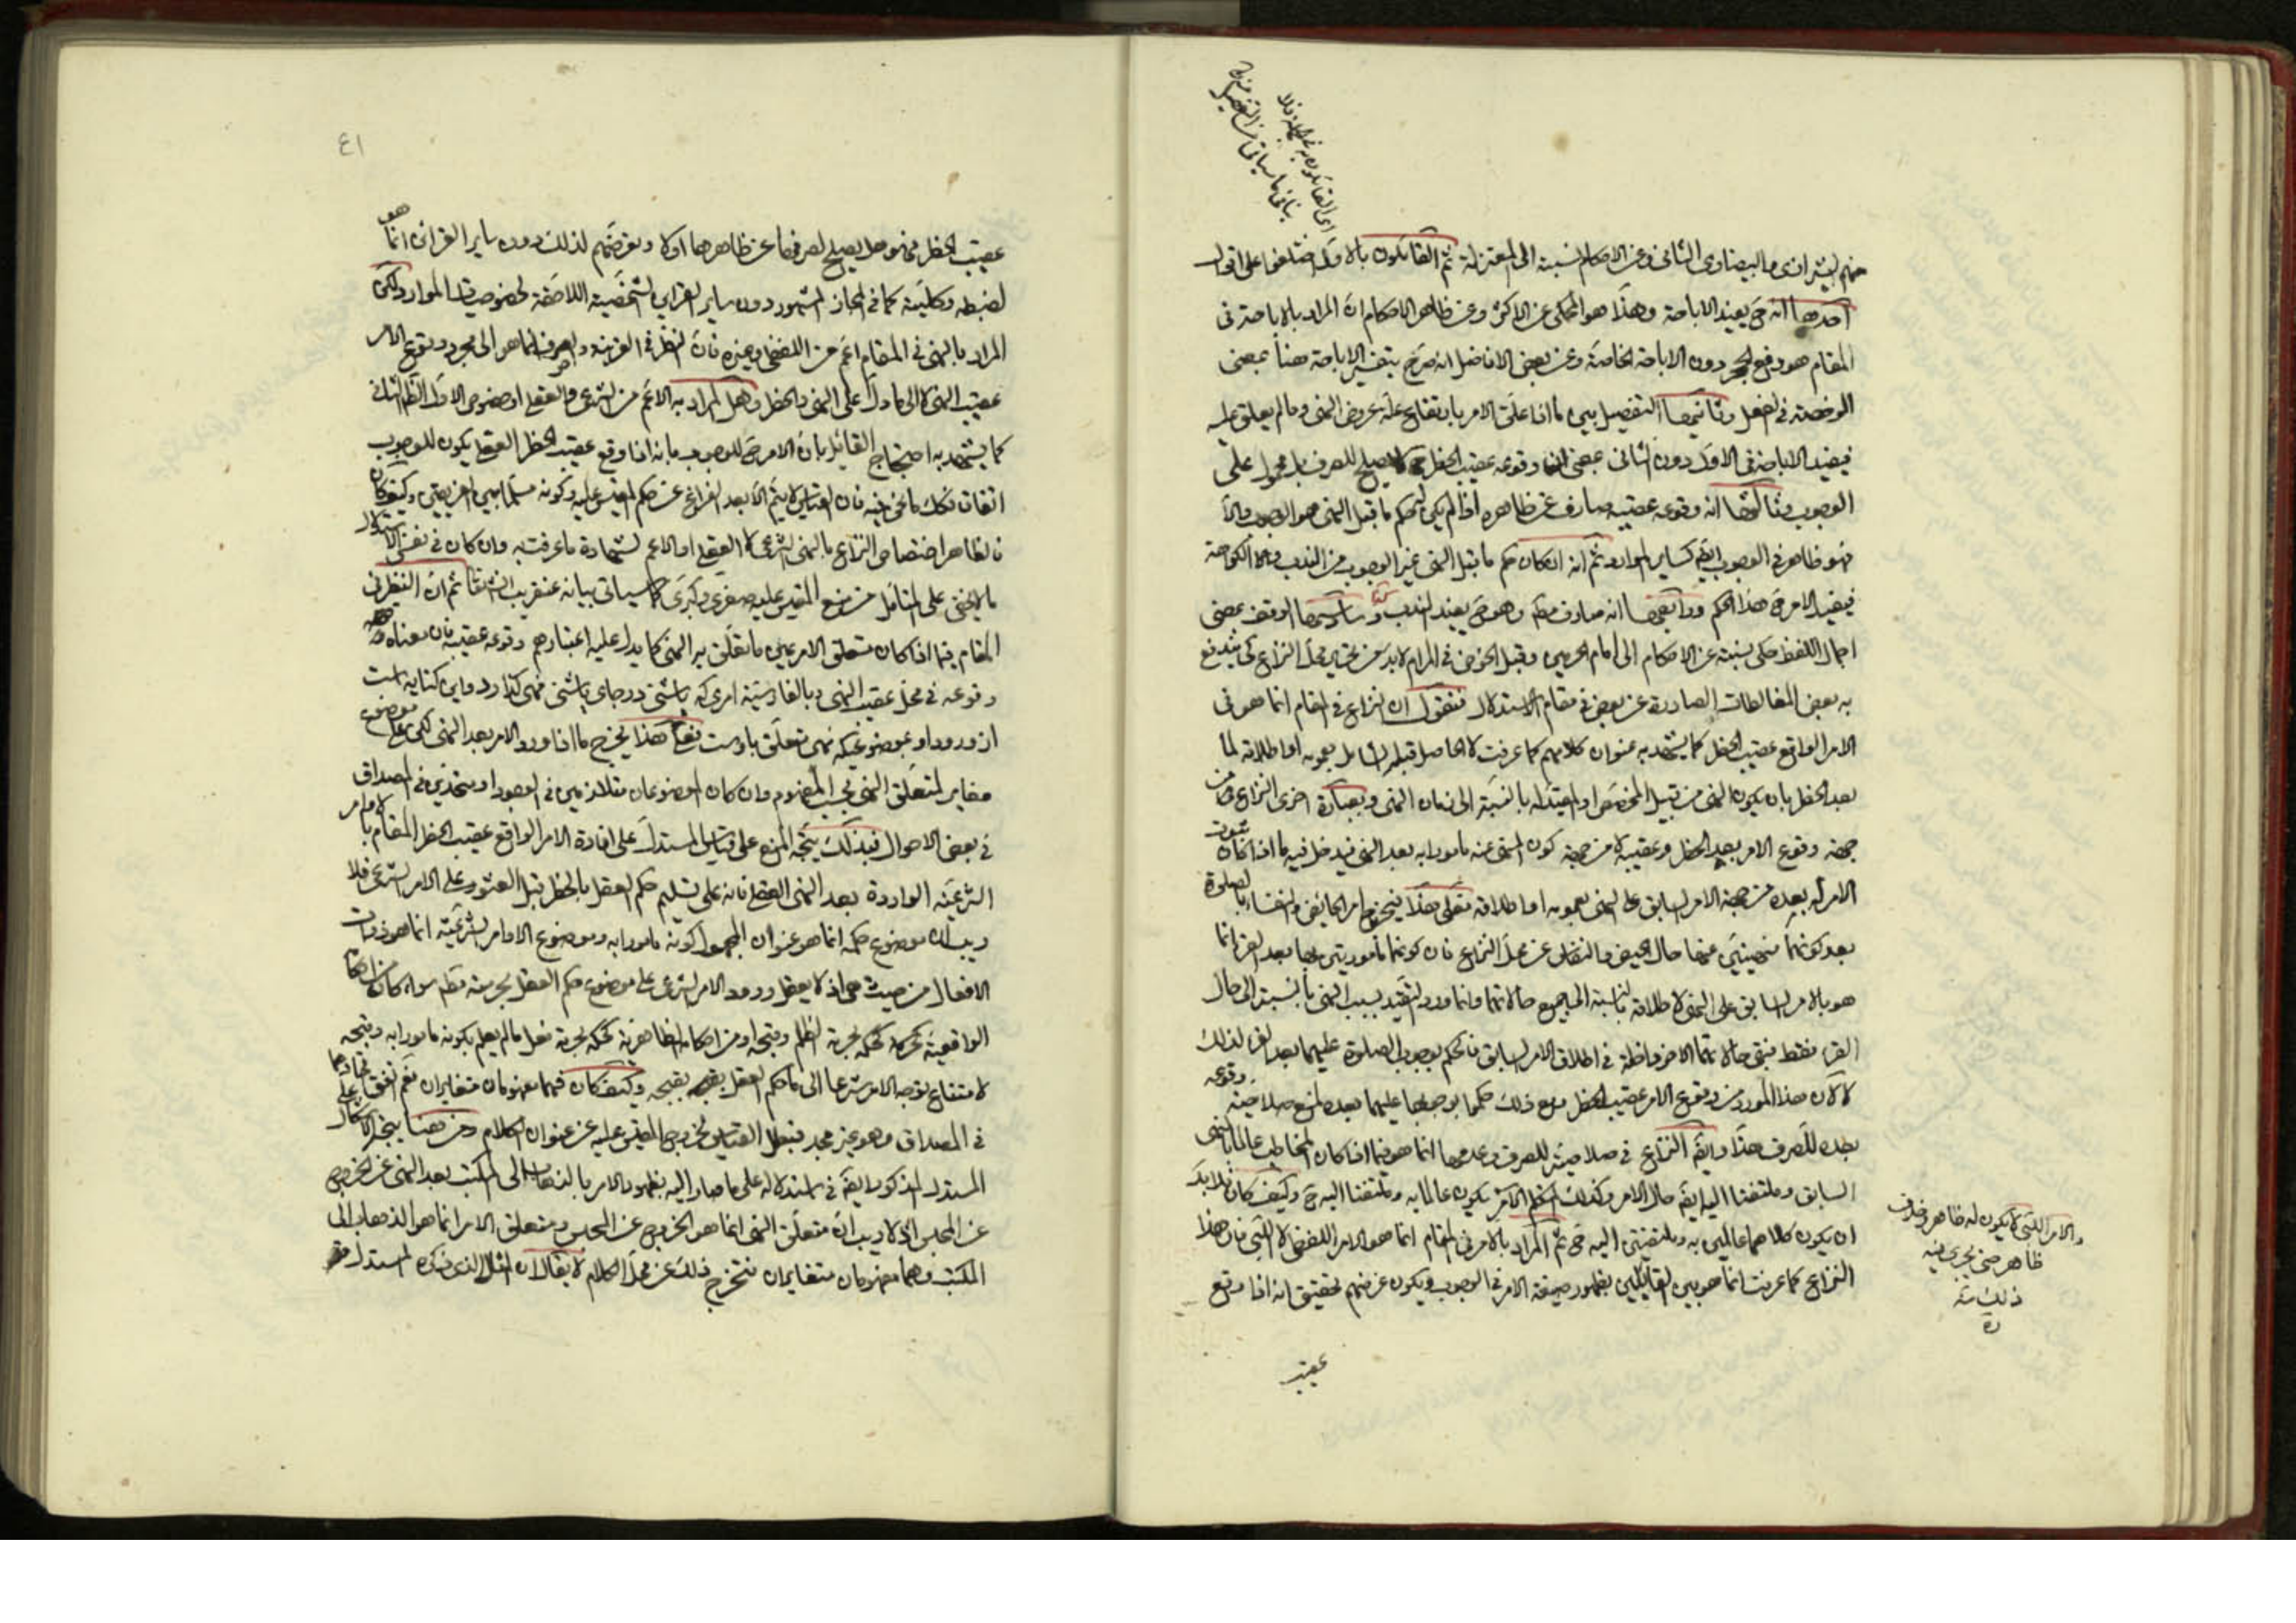 اي القائلون به في الجملة فلا
ينافي ما سيأتي من التفصيل منه
منهم الشيرازي والبيضاوي الثاني وعن الاحكام نسبته الى المعتزلة ثم القائلون بالاول اختلفوا على اقوال
احدها انه ح يفيد الاباحة وهذا هو المحكي عن الاكثر وعن ظاهر الاحكام ان المراد بالاباحة في
المقام هو رفع الحجر دون الاباحة الخاصة وعن بعض الافاضل انه صرح بتفسير الاباحة هنا بمعنى
الرخصة في الفعل وثانيها التفصيل بين ما اذا علق الامر بارتفاع علة عروض النهي وما لم يعلق عليه
فيفيد الاباحة في الاول دون الثاني بمعنى ان وقوعه عقيب الحظر ح لا يصلح للصرف بل محمول على
الوجوب وثالثها ان وقوعه عقيبه صارف عن ظاهره اذا لم يكن حكم ما قبل النهي هو الوجوب والا
فهو ظاهر في الوجوب ايضا كساير الموارد ثم انه ان كان حكم ما قبل النهي غير الوجوب من الندب والكراهة
فيفيد الامر ح هذا الحكم ورابعها انه صارف مط وهو ح يفيد الندب وخامسها الوقف بمعنى
اجمال اللفظ حكى نسبته عن الاحكام الى امام الحرمين وقبل الخوض في المرام لا بد من تحرير محل النزاع كي يندفع
به بعض المغالطات الصادرة عن بعض في مقام الاستدلال فنقول ان النزاع في المقام انما هو في
الامر الواقع عقيب الحظر كما يشهد به عنوان كلامهم كما عرفت لا الحاصل قبله الشامل بعمومه او اطلاقه لما
بعد الحظر بان يكون النهي من قبيل المخصص او المقيد له بالنسبة الى زمان النهي وبعبارة اخرى النزاع من
جهة وقوع الامر بعد الحظر وعقيبه لا من جهة كون المنهي عنه مامورا به بعد النهي فيدخل فيه ما اذا كان ثبوت
الامر له بعده من جهة الامر السابق على النهي بعمومه او اطلاقه فعلى هذا فيخرج امر الحائض والنفساء بالصلوة
بعد كونهما منهيتين عنها حال الحيض والنفاس عن محل النزاع فان كونهما مامورتين بها بعد القرء انما
هو بالامر السابق على النهي لاطلاقه بالنسبة الى جميع حالاتهما وانما ورد التقييد بسبب النهي بالنسبة الى حال
القرء فقط فبقى حالاتهما الاخر داخلة في اطلاق الامر السابق فالحكم بوجوب الصلوة عليهما بعد القرء لذلك
لا لان هذا المورد من وقوع الامر عقيب الحظر ومع ذلك حكموا بوجوبها عليهما بعده لمنع صلاحية وقوعه
بعده للصرف هذا وايضا النزاع في صلاحيته للصرف وعدمها انما هو فيما اذا كان المخاطب عالما بالنهي
السابق وملتفتا اليه ايضا حال الامر وكذلك المتكلم الامر يكون عالما به وملتفتا اليه ح وكيف كان فلا بد
ان يكون كلاهما عالمين به وملتفتين اليه ح ثم المراد بالامر في المقام انما هو الامر اللفظي لا اللبي فان هذا
النزاع كما عرفت انما هو بين القائلين بظهور صيغة الامر في الوجوب ويكون غرضهم تحقيق انه اذا وقع
والامر اللبي لا يكون له ظاهر وخلاف
ظاهر حتى يجري فيه
ذلك منه
ره
عقيب
٤١
عقيب الحظر فهو هل يصلح لصرفها عن ظاهرها او لا وتعرضهم لذلك دون ساير القرائن انما هو
لضبطه وكليته كما في المجاز المشهور دون ساير القرائن الشخصية اللاحقة لخصوصيات الموارد لكن
المراد بالنهي في المقام اعم من اللفظي وغيره فان النظر في القرينة والصرف انما هو الى مجرد وقوع الامر
عقيب النهي لا الى ما دل على النهي والحظر وهل المراد به الاعم من الشرعي والعقلي او خصوص الاول الظ الثاني
كما يشهد به احتجاج القائل بان الامر ح للوجوب بانه اذا وقع عقيب الحظر العقلي يكون للوجوب
اتفاقا فكذلك ما نحن فيه فان القياس لا يتم الا بعد الفراغ عن حكم المقيس عليه وكونه مسلما بين الفريقين وكيف كان
فالظاهر اختصاص النزاع بالنهي الشرعي لا العقلي او الاعم لشهادة ما عرفت به وان كان في نفس الاستدلال
ما لا يخفى على المتامل من منع المقيس عليه صغرى وكبرى كما سيأتي بيانه عنقريب انشاء الله ثم ان النظر في
المقام فيما اذا كان متعلق الامر عين ما تعلق به النهي كما يدل عليه اعتبارهم وقوعه عقيبه فان معناه
وقوعه في محل عقيب النهي وبالفارسية امري كه پا شي در جاي پا شي نهي گذارد واين كنايه است
از ورود او بموضوعيكه نهي تعلق باوست فعلى هذا يخرج ما اذا ورد الامر بعد النهي لكن على موضوع
مغاير لمتعلق النهي بحسب المفهوم وان كان الموضوعان متلازمين في الوجود او متحدين في المصداق
في بعض الاحوال فبذلك يتجه المنع على قياس المستدل على افادة الامر الواقع عقيب الحظر المقام بالاوامر
الشرعية الواردة بعد النهي العقلي فانه على تسليم حكم العقل بالحظر قبل العثور على الامر الشرعي فلا
ريب ان موضوع حكمه انما هو عنوان المجهول كونه مامورا به وموضوع الاوامر الشرعية انما هو ذوات
الافعال من حيث هي اذ لا يعقل ورود الامر الشرعي على موضوع حكم العقل بحرمته مط سواء كان من احكامه
الواقعية كحكمه بحرمة الظلم وقبحه او من احكامه الظاهرية كحكمه بحرمة فعل ما لم يعلم بكونه مامورا به وقبحه
لامتناع توجه الامر شرعا الى ما حكم العقل بقبحه وكيف كان فهما مفهومان متغايران نعم اتفق اتحادهما
في المصداق وهو غير مجد فبطل القياس لخروج المقيس عليه عن عنوان الكلام ومن هنا يتجه الاشكال على
المستدل المذكور ايضا في استدلاله على ما صار اليه بظهور الامر بالذهاب الى المكتب بعد النهي عن الخروج
عن المجلس اذ لا ريب ان متعلق النهي انما هو الخروج عن المجلس ومتعلق الامر انما هو الذهاب الى
المكتب وهما مفهومان متغايران فتخرج ذلك عن محل الكلام لا يقال ان المثال الذي ذكره المستدل